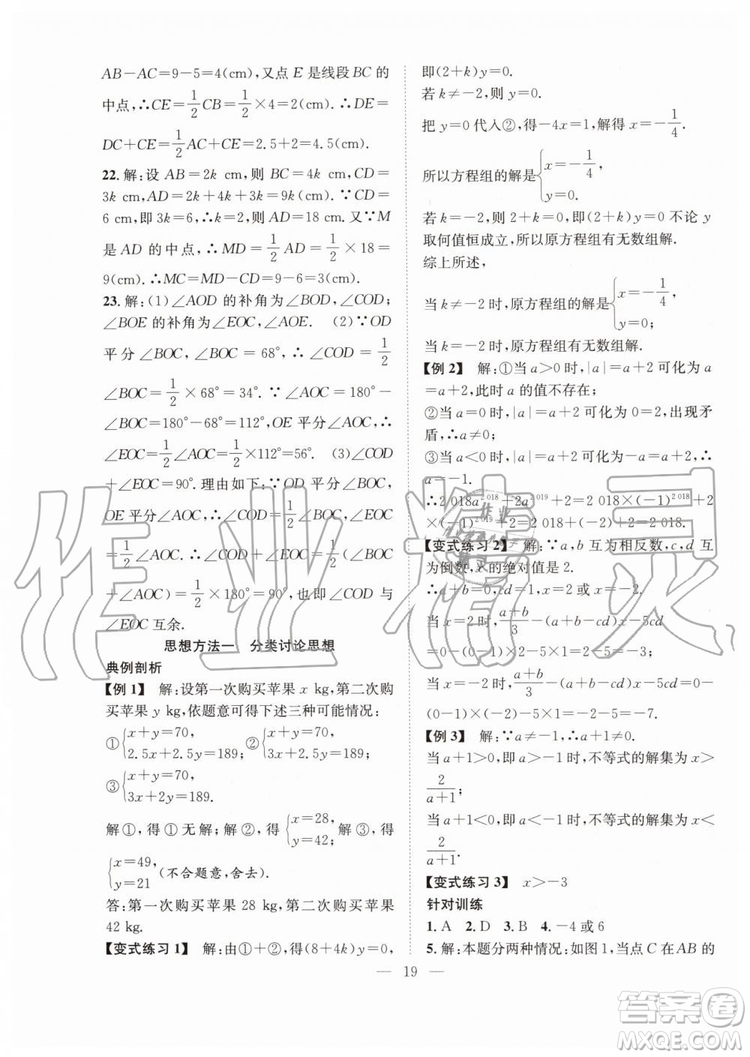 AB－AC=9－5=4(cm), 又点 E 是线段 BC 的
中点, ∴CE=1/2 CB=1/2×4=2(cm). ∴DE=
DC+CE=1/2 AC+CE=2.5+2=4.5(cm).
22. 解: 设 AB=2k cm, 则 BC=4k cm, CD=
3k cm, AD=2k+4k+3k=9k(cm). ∵CD=
6 cm, 即 3k=6, ∴k=2, ∴AD=18 cm. 又∵M
是 AD 的中点, ∴MD=1/2 AD=1/2×18=
9(cm). ∴MC=MD－CD=9－6=3(cm).
23. 解: (1)∠AOD 的补角为∠BOD, ∠COD;
∠BOE 的补角为∠EOC, ∠AOE. (2)∵OD
平分∠BOC, ∠BOC=68°, ∴∠COD=1/2
∠BOC=1/2×68°=34°. ∵∠AOC=180°－
∠BOC=180°－68°=112°, OE 平分∠AOC,
∴∠EOC=1/2∠AOC=56°. (3)∠COD+
∠COE=90°. 理由如下: ∵OD 平分∠BOC,
EOC 互余.
思想方法一 分类讨论思想
典例剖析
【例 1】 解: 设第一次购买苹果 x kg, 第二次购
买苹果 y kg, 依题意可得以下三种可能情况:
①{x+y=70, 2.5x+2y=189; ②{x+y=70, 2.5x+2y=189;
③{x+y=70, 3x+2y=189;
解①, 得①无解; 解②, 得{x=28, y=42; 解③, 得
{x=49, y=21 (不合题意, 舍去).
答: 第一次购买苹果 28 kg, 第二次购买苹果
42 kg.
【变式练习 1】 解: 由①+②, 得(8+4k)y=0,
即(2+k)y=0.
若 k≠－2, 则 y=0.
把 y=0 代入②, 得－4x=1, 解得 x=－1/4.
所以方程组的解是{x=－1/4, y=0.
若 k=－2, 则 2+k=0, (2+k)y=0 不论 y
取何值恒成立, 所以原方程组有无数组解.
综上所述,
当 k≠－2 时, 原方程组的解是{x=－1/4, y=0.
当 k=－2 时, 原方程组有无数组解.
【例 2】 解: ①当 a>0 时, |a|=a+2 可化为 a
=a+2, 此时 a 的值不存在;
②当 a=0 时, |a|=a+2 可化为 0=2, 出现矛
盾, ∴a≠0;
③当 a<0 时, |a|=a+2 可化为－a=a+2,
a=－1.
【变式练习 2】 解: ∵a, b 互为相反数, c, d 互
为倒数, x 的绝对值是 2.
∴a+b=0, cd=1, x=2 或 x=－2.
(0－1)×(－2)－5×1=2－5=－3;
(0－1)×2－5×1=－2－5=－7.
【例 3】 解: ∵a≠－1, ∴a+1≠0.
当 a+1>0, 即 a>－1 时, 不等式的解集为 x
>2/(a+1);
当 a+1<0, 即 a<－1 时, 不等式的解集为 x
<2/(a+1).
【变式练习 3】 x>－3
针对训练
1. A 2. D 3. B 4. －4 或 6
5. 解: 本题分两种情况: 如图 1, 当点 C 在 AB 的
— 19 —
作业精灵
答案圈
MXQE.COM